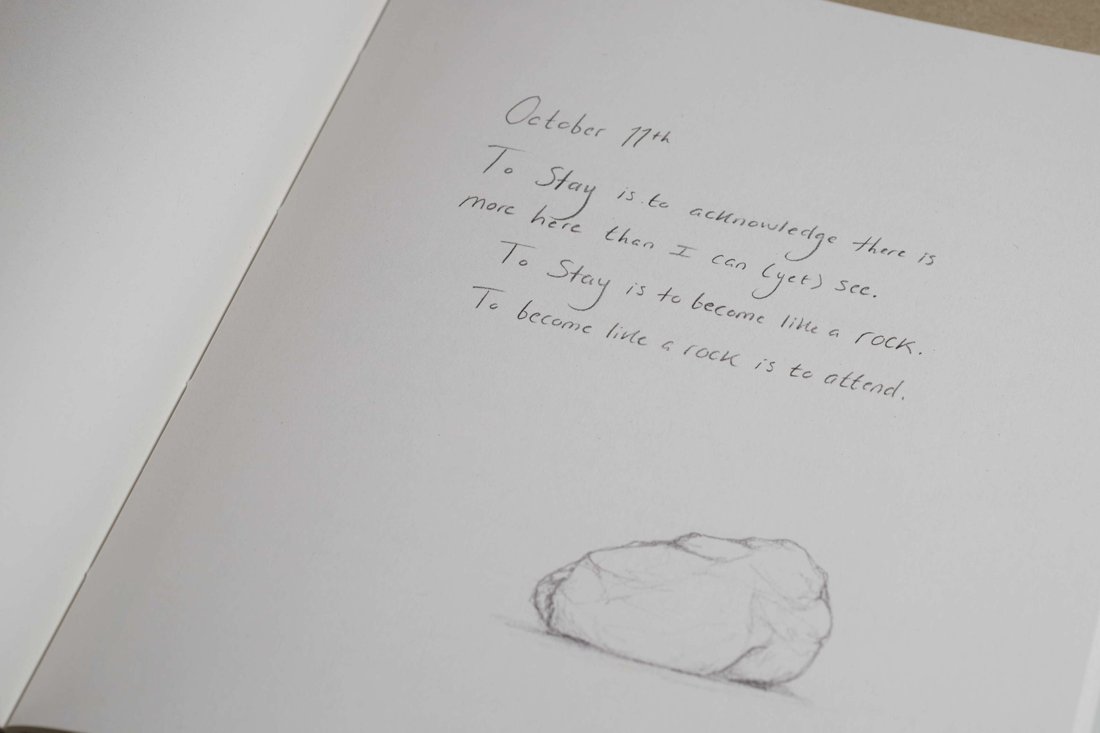 October 11th
To Stay is to acknowledge there is
more here than I can (yet) see.
To Stay is to become like a rock.
To become like a rock is to attend.